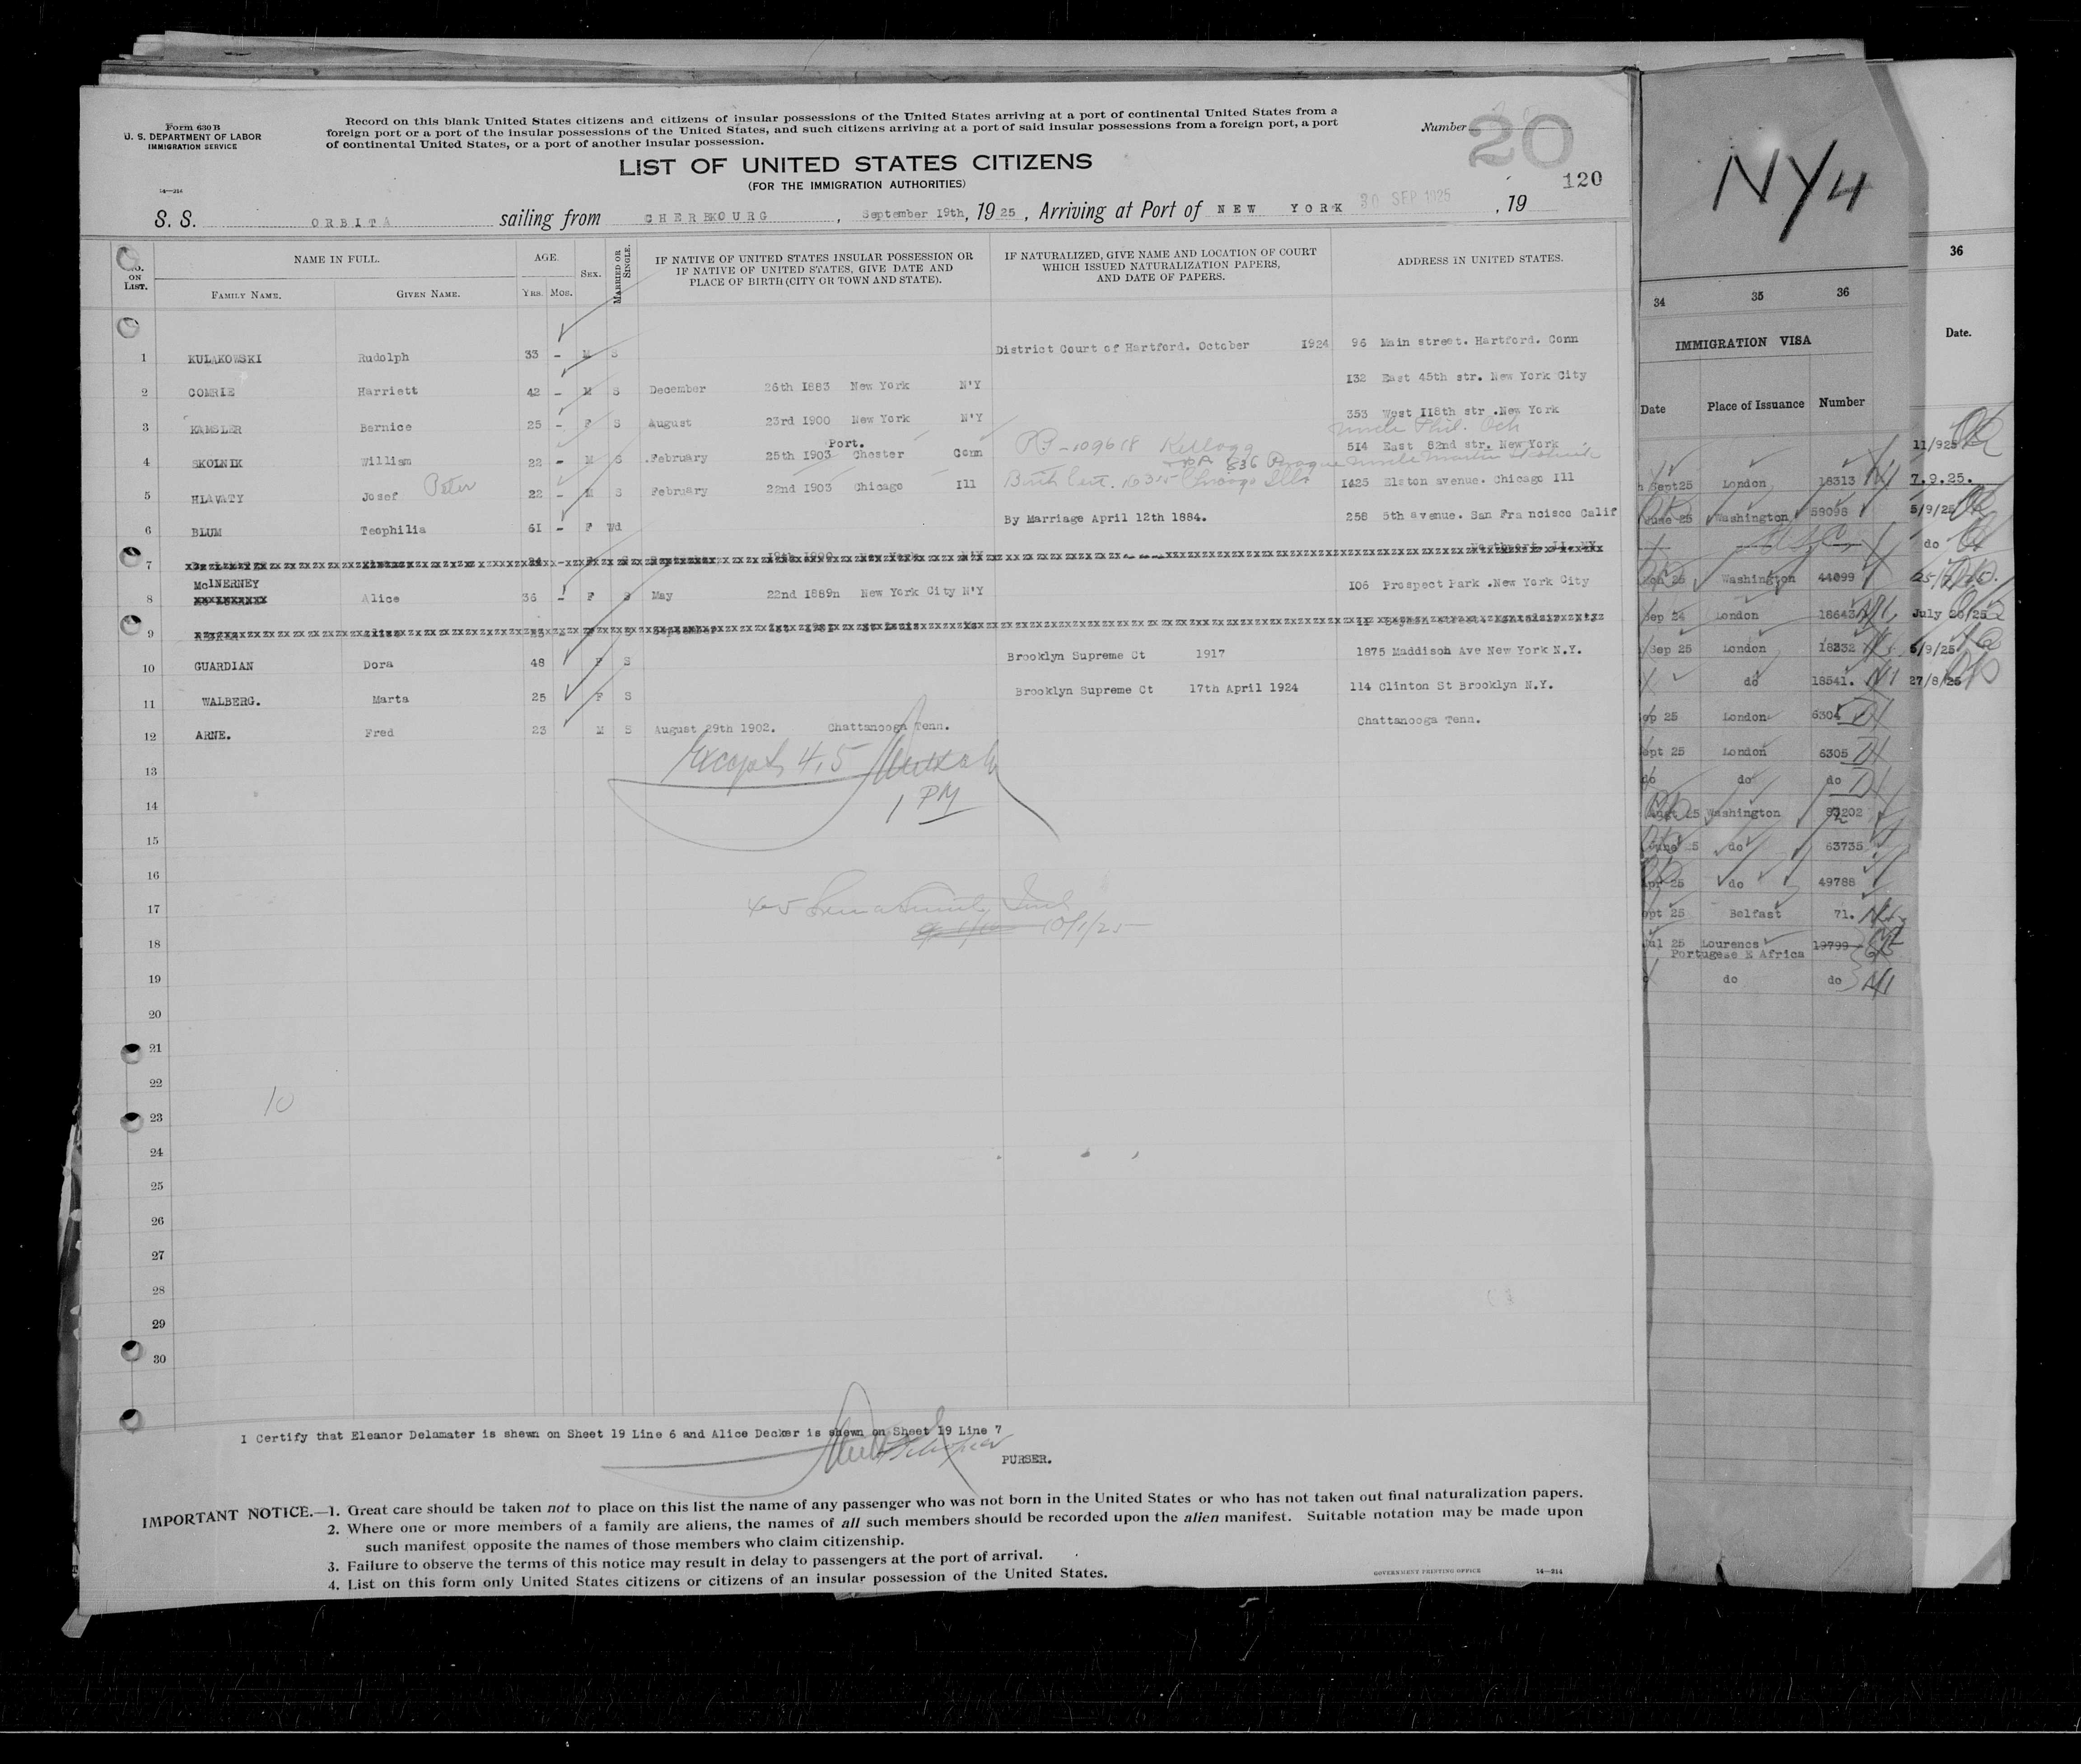 Form 630 B
U. S. DEPARTMENT OF LABOR
IMMIGRATION SERVICE
14—214
Record on this blank United States citizens and citizens of insular possessions of the United States arriving at a port of continental United States from a
foreign port or a port of the insular possessions of the United States, and such citizens arriving at a port of said insular possessions from a foreign port, a port
of continental United States, or a port of another insular possession.
Number 20
120
LIST OF UNITED STATES CITIZENS
(FOR THE IMMIGRATION AUTHORITIES)
S. S. ORBITA sailing from CHERBOURG, September 19th, 1925, Arriving at Port of NEW YORK 30 SEP 1925, 19
NO. ON LIST.
NAME IN FULL.
FAMILY NAME.
GIVEN NAME.
AGE.
YRS. MOS.
SEX.
MARRIED OR SINGLE.
IF NATIVE OF UNITED STATES INSULAR POSSESSION OR
IF NATIVE OF UNITED STATES, GIVE DATE AND
PLACE OF BIRTH (CITY OR TOWN AND STATE).
IF NATURALIZED, GIVE NAME AND LOCATION OF COURT
WHICH ISSUED NATURALIZATION PAPERS,
AND DATE OF PAPERS.
ADDRESS IN UNITED STATES.
1 KULAKOWSKI Rudolph 33 - M S District Court of Hartford. October 1924 96 Main street. Hartford. Conn
2 COMRIE Harriett 42 - M S December 26th 1883 New York N'Y 132 East 45th str. New York City
3 KAMSLER Bernice 25 - F S August 23rd 1900 New York N'Y 353 West 118th str .New York
uncle Phil.
Port.
4 SKOLNIK William 22 - M S .February 25th 1903 Chester Conn PP-109618 Kellogg 514 East 82nd str. New York
836 Prague uncle Martin
5 HLAVATY Josef Peter 22 - M S February 22nd 1903 Chicago Ill Birth Cert. Chicago Ills 1425 Elston avenue. Chicago Ill
6 BLUM Teophilia 61 - F Wd By Marriage April 12th 1884. 258 5th avenue. San Francisco Calif
7 24 - September 19th 1900 New York N'Y
McINERNEY
8 Alice 36 - F S May 22nd 1889n New York City N'Y 106 Prospect Park .New York City
9 Alice September 1st
10 GUARDIAN Dora 48 F S Brooklyn Supreme Ct 1917 1875 Maddison Ave New York N.Y.
11 WALBERG. Marta 25 F S Brooklyn Supreme Ct 17th April 1924 114 Clinton St Brooklyn N.Y.
12 ARNE. Fred 23 M S August 29th 1902. Chattanooga Tenn. Chattanooga Tenn.
13
Except 4,5
14
1 PM
15
16
17
4-5
18
10/1/25
19
20
21
22
10
23
24
25
26
27
28
29
30
I Certify that Eleanor Delamater is shewn on Sheet 19 Line 6 and Alice Decker is shewn on Sheet 19 Line 7
PURSER.
IMPORTANT NOTICE.—1. Great care should be taken not to place on this list the name of any passenger who was not born in the United States or who has not taken out final naturalization papers.
2. Where one or more members of a family are aliens, the names of all such members should be recorded upon the alien manifest. Suitable notation may be made upon
such manifest opposite the names of those members who claim citizenship.
3. Failure to observe the terms of this notice may result in delay to passengers at the port of arrival.
4. List on this form only United States citizens or citizens of an insular possession of the United States.
GOVERNMENT PRINTING OFFICE 14—214
NY4
34 35 36
IMMIGRATION VISA
Date Place of Issuance Number
Sept25 London 18313
June 25 Washington 58096
25 Washington 44099
Sep 24 London 18643
Sep 25 London 18232
do 18541.
ep 25 London 6304
ept 25 London 6305
do do do
25 Washington 202
June 25 do 63735
Apr 25 do 49788
ept 25 Belfast 71.
Jul 25 Lourencs 19799
Portugese E Africa
do do
36
Date.
11/925
7.9.25.
5/9/25
do
July 20/25
5/9/25
27/8/25